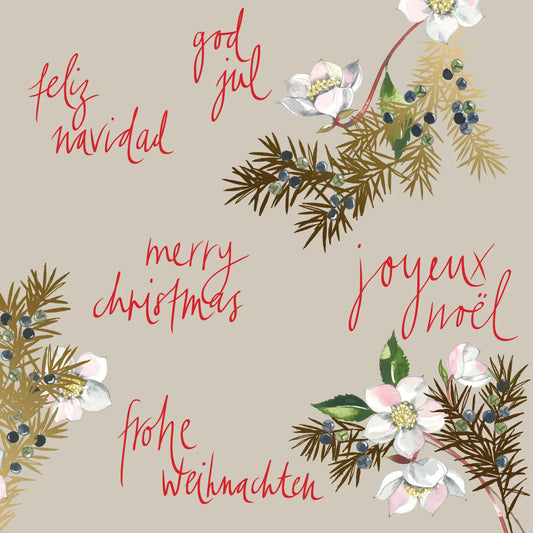 god
jul
feliz
navidad
merry
christmas
joyeux
noël
frohe
weihnachten